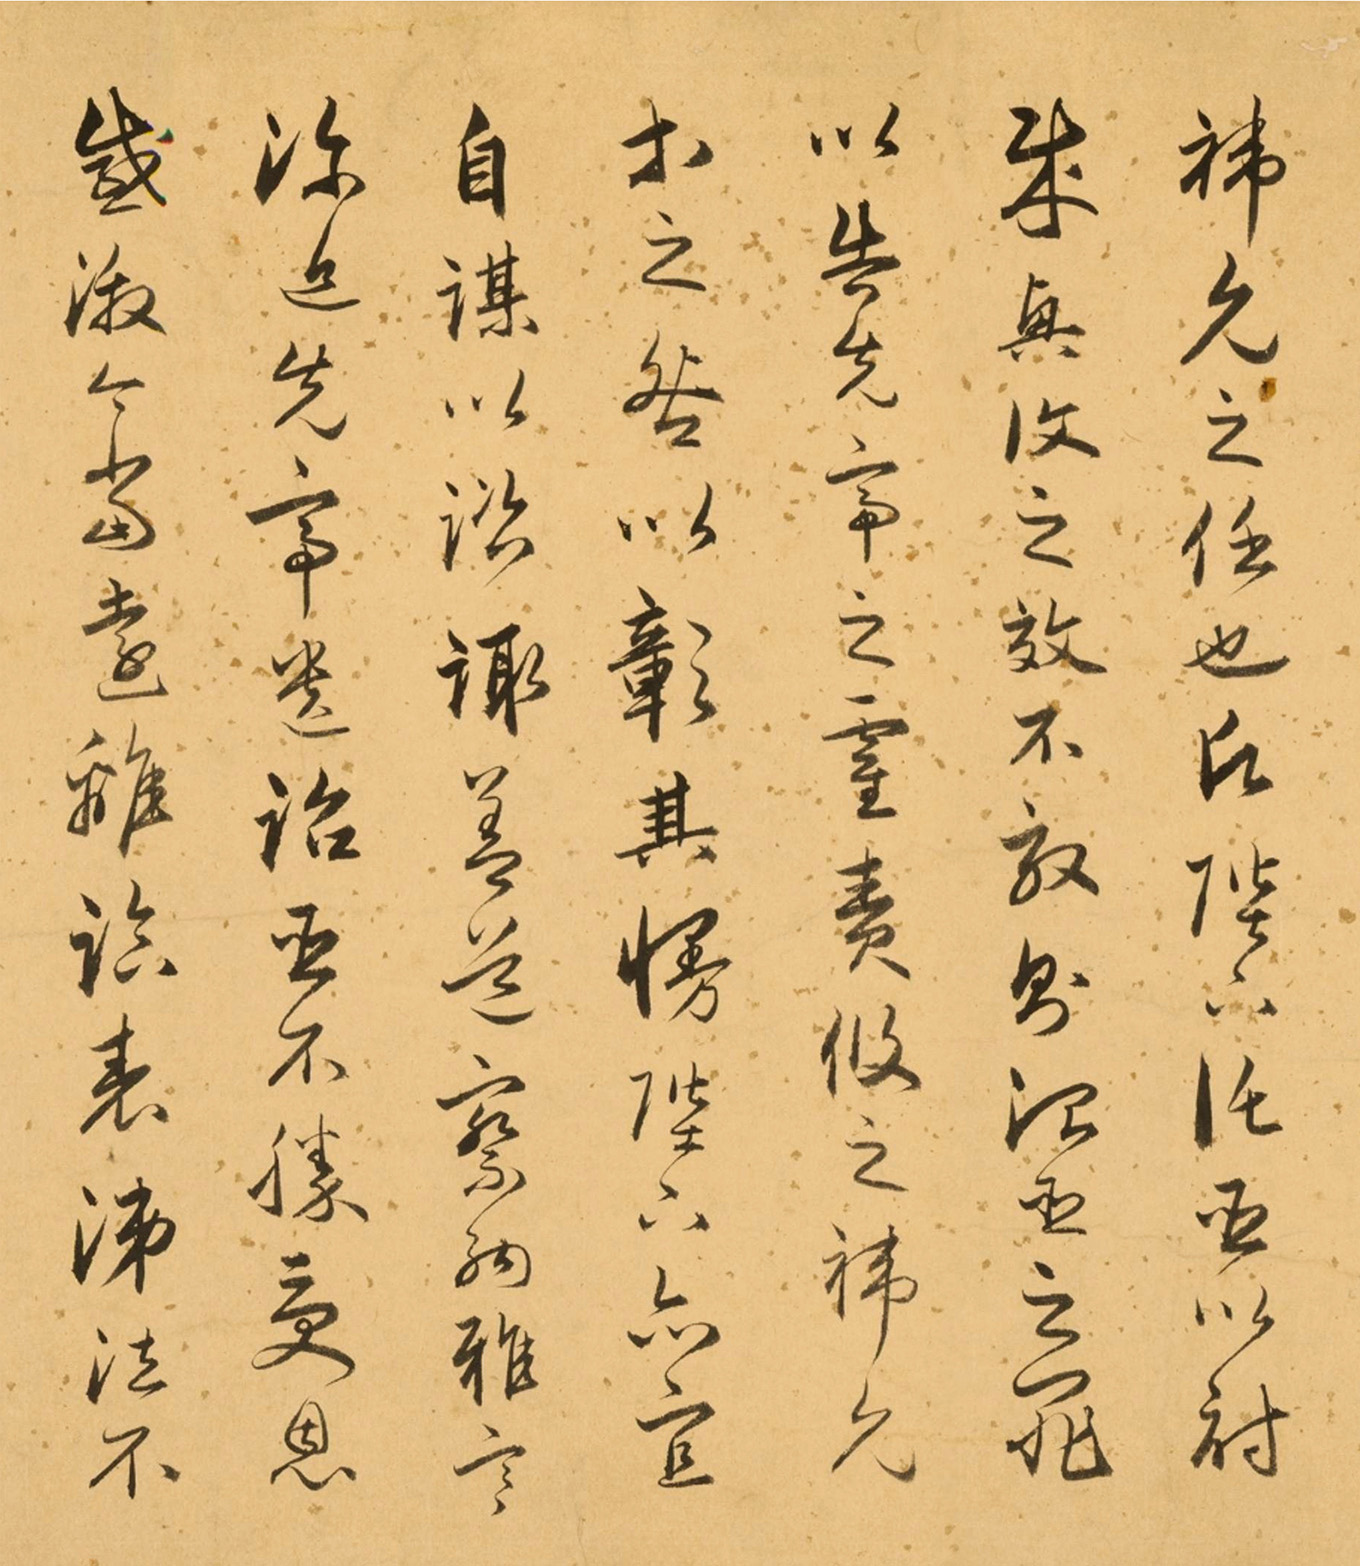 祎允之任也願陛下託臣以討
賊興復之效不效則治臣之罪
以告先帝之靈責攸之祎允
等之咎以彰其慢陛下亦宜
自謀以諮諏善道察納雅言
深追先帝遺詔臣不勝受恩
感激今當遠離臨表涕泣不